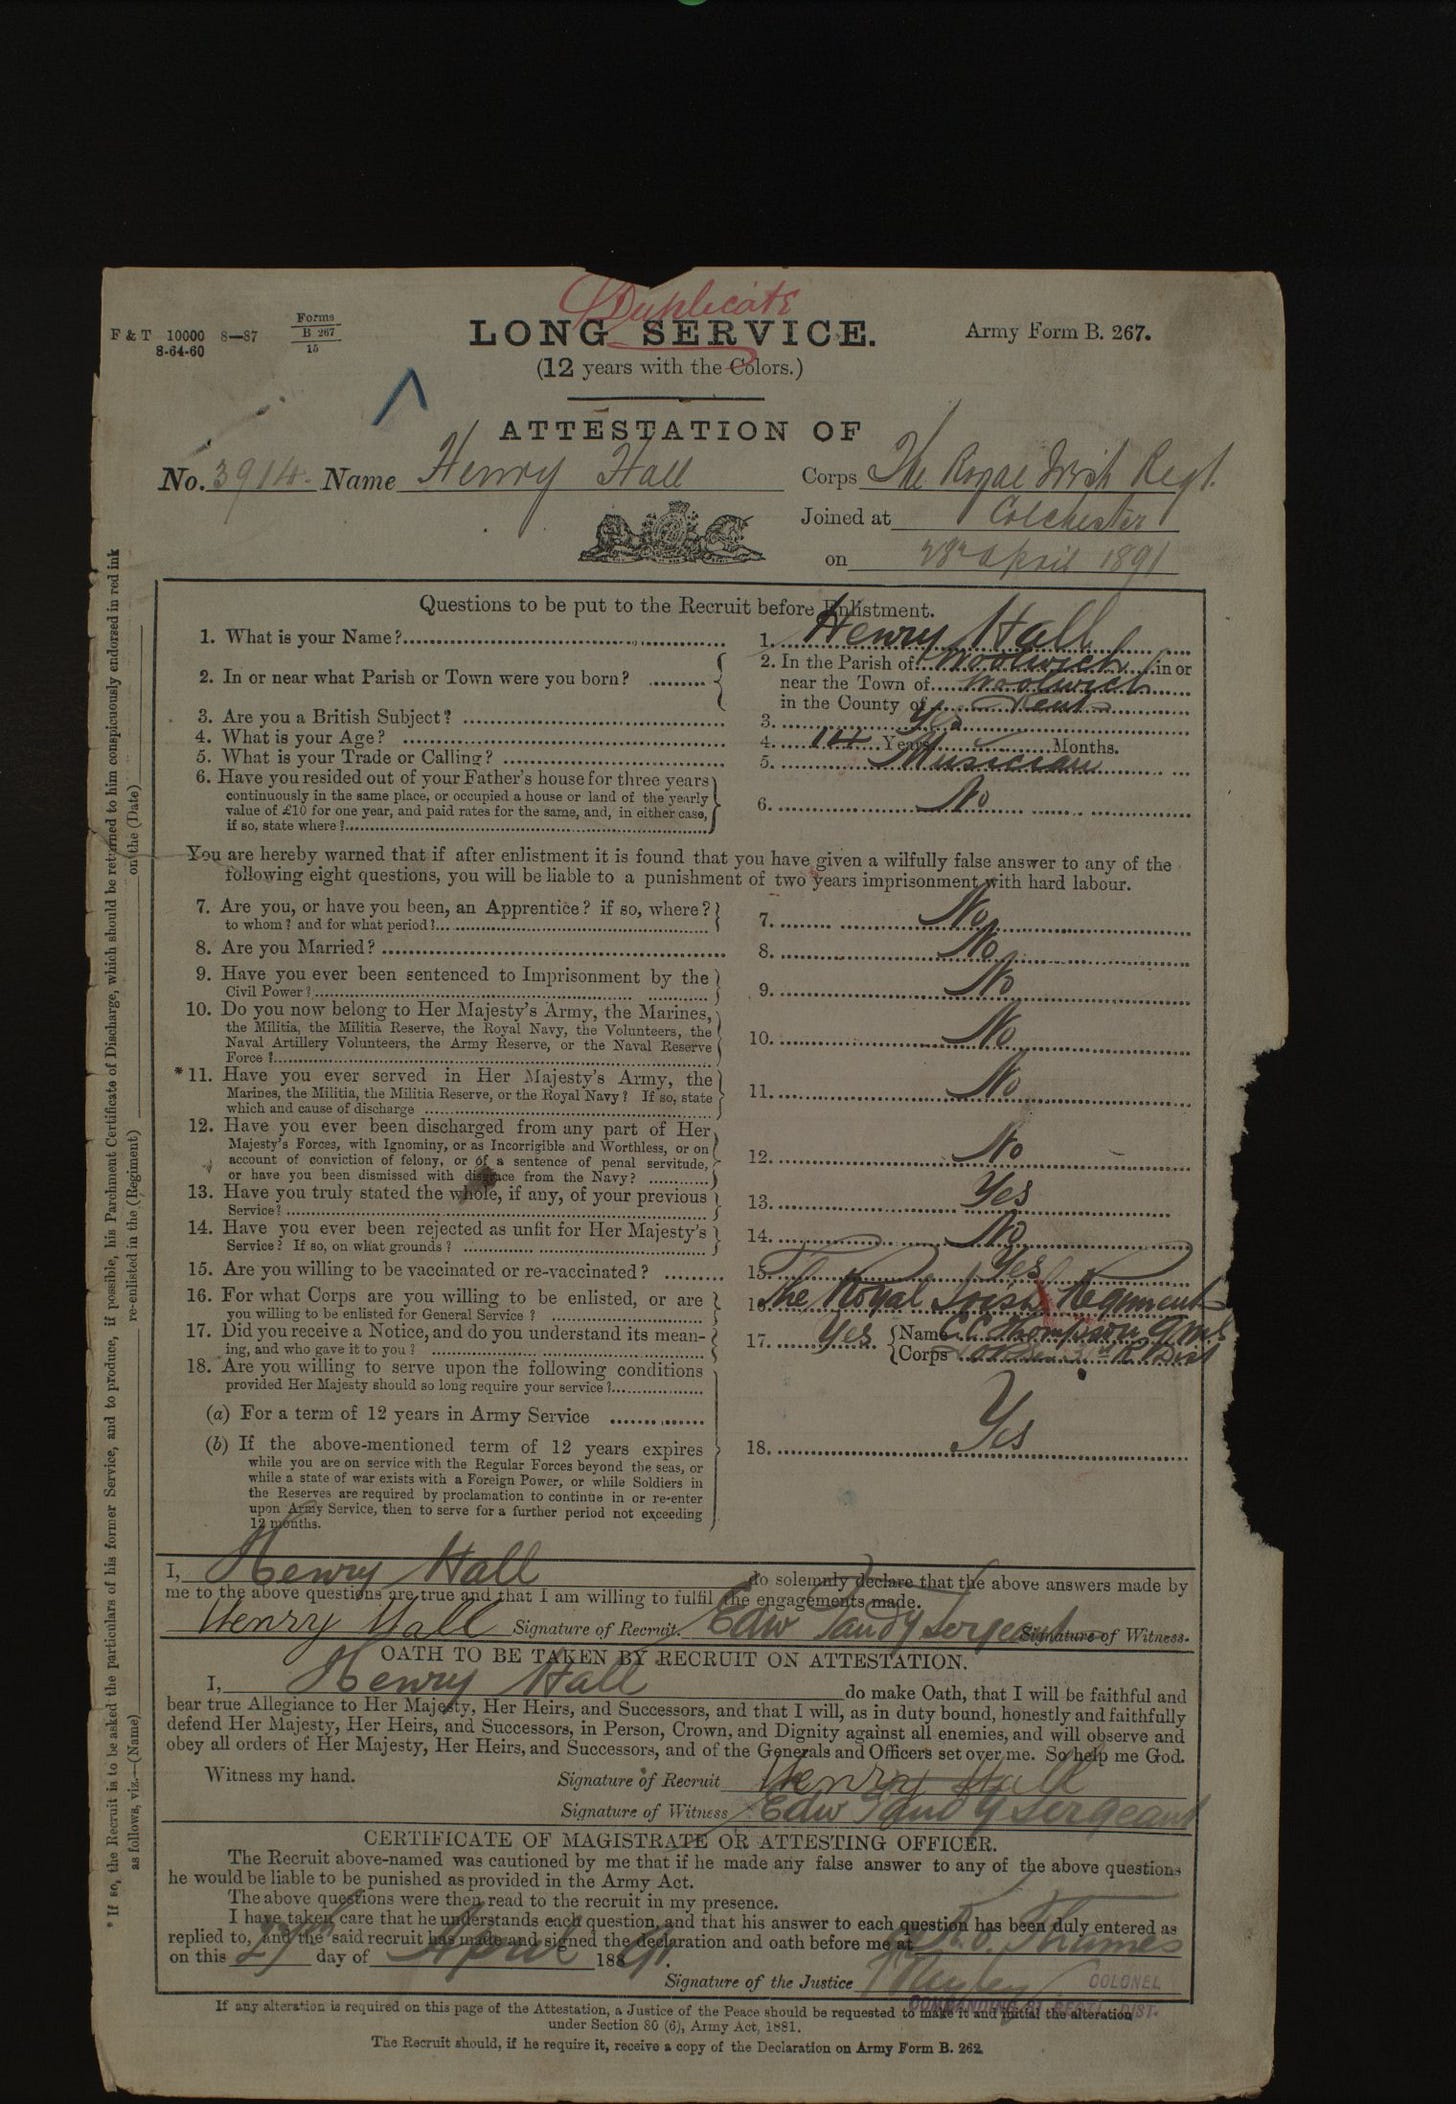 Duplicate
F & T 10000 8—87
8-64-60
Forms
B 267
15
LONG SERVICE.
Army Form B. 267.
(12 years with the Colors.)
ATTESTATION OF
No. 3914. Name Henry Hall Corps The Royal Irish Regt.
Joined at Colchester
on 28th April 1891
Questions to be put to the Recruit before Enlistment.
1. What is your Name? 1. Henry Hall
2. In or near what Parish or Town were you born? 2. In the Parish of Woolwich in or
near the Town of Woolwich
in the County of Kent
3. Are you a British Subject? 3. Yes
4. What is your Age? 4. 14 Years Months.
5. What is your Trade or Calling? 5. Musician
6. Have you resided out of your Father's house for three years
continuously in the same place, or occupied a house or land of the yearly
value of £10 for one year, and paid rates for the same, and, in either case,
if so, state where? 6. No
You are hereby warned that if after enlistment it is found that you have given a wilfully false answer to any of the
following eight questions, you will be liable to a punishment of two years imprisonment with hard labour.
7. Are you, or have you been, an Apprentice? if so, where?
to whom? and for what period? 7. No
8. Are you Married? 8. No
9. Have you ever been sentenced to Imprisonment by the
Civil Power? 9. No
10. Do you now belong to Her Majesty's Army, the Marines,
the Militia, the Militia Reserve, the Royal Navy, the Volunteers, the
Naval Artillery Volunteers, the Army Reserve, or the Naval Reserve
Force? 10. No
*11. Have you ever served in Her Majesty's Army, the
Marines, the Militia, the Militia Reserve, or the Royal Navy? If so, state
which and cause of discharge 11. No
12. Have you ever been discharged from any part of Her
Majesty's Forces, with Ignominy, or as Incorrigible and Worthless, or on
account of conviction of felony, or of a sentence of penal servitude,
or have you been dismissed with disgrace from the Navy? 12. No
13. Have you truly stated the whole, if any, of your previous
Service? 13. Yes
14. Have you ever been rejected as unfit for Her Majesty's
Service? If so, on what grounds? 14. No
15. Are you willing to be vaccinated or re-vaccinated? 15. Yes
16. For what Corps are you willing to be enlisted, or are
you willing to be enlisted for General Service? 16. The Royal Irish Regiment
17. Did you receive a Notice, and do you understand its mean-
ing, and who gave it to you? 17. Yes Name Thompson
Corps Dist
18. Are you willing to serve upon the following conditions
provided Her Majesty should so long require your service?
(a) For a term of 12 years in Army Service
(b) If the above-mentioned term of 12 years expires
while you are on service with the Regular Forces beyond the seas, or
while a state of war exists with a Foreign Power, or while Soldiers in
the Reserves are required by proclamation to continue in or re-enter
upon Army Service, then to serve for a further period not exceeding
12 months.
18. Yes
I, Henry Hall do solemnly declare that the above answers made by
me to the above questions are true and that I am willing to fulfil the engagements made.
Henry Hall Signature of Recruit. Edw Tandy Sergeant Signature of Witness.
OATH TO BE TAKEN BY RECRUIT ON ATTESTATION.
I, Henry Hall do make Oath, that I will be faithful and
bear true Allegiance to Her Majesty, Her Heirs, and Successors, and that I will, as in duty bound, honestly and faithfully
defend Her Majesty, Her Heirs, and Successors, in Person, Crown, and Dignity against all enemies, and will observe and
obey all orders of Her Majesty, Her Heirs, and Successors, and of the Generals and Officers set over me. So help me God.
Witness my hand. Signature of Recruit Henry Hall
Signature of Witness Edw Tandy Sergeant
CERTIFICATE OF MAGISTRATE OR ATTESTING OFFICER.
The Recruit above-named was cautioned by me that if he made any false answer to any of the above questions
he would be liable to be punished as provided in the Army Act.
The above questions were then read to the recruit in my presence.
I have taken care that he understands each question, and that his answer to each question has been duly entered as
replied to, and the said recruit has made and signed the declaration and oath before me at
on this 27th day of April 1891.
Signature of the Justice
COLONEL
COMMANDING REGTL. DIST.
If any alteration is required on this page of the Attestation, a Justice of the Peace should be requested to make it and initial the alteration
under Section 80 (6), Army Act, 1881.
The Recruit should, if he require it, receive a copy of the Declaration on Army Form B. 262.
* If so, the Recruit is to be asked the particulars of his former Service, and to produce, if possible, his Parchment Certificate of Discharge, which should be returned to him conspicuously endorsed in red ink
as follows, viz.—(Name) re-enlisted in the (Regiment) on the (Date)